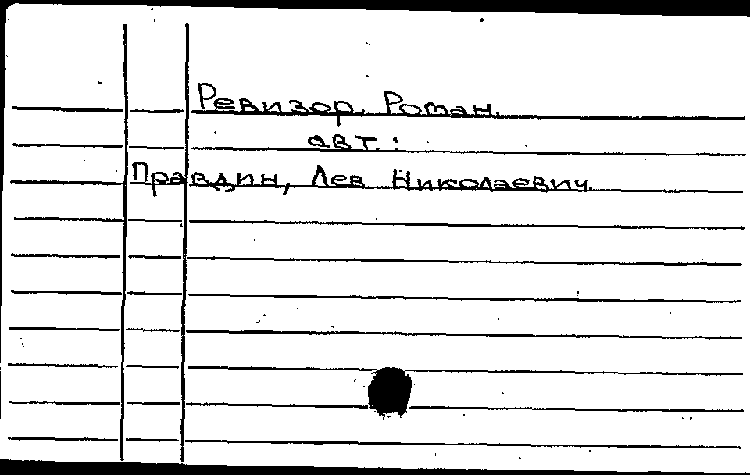 Ревизор. Роман.
авт.:
Правдин, Лев Николаевич.